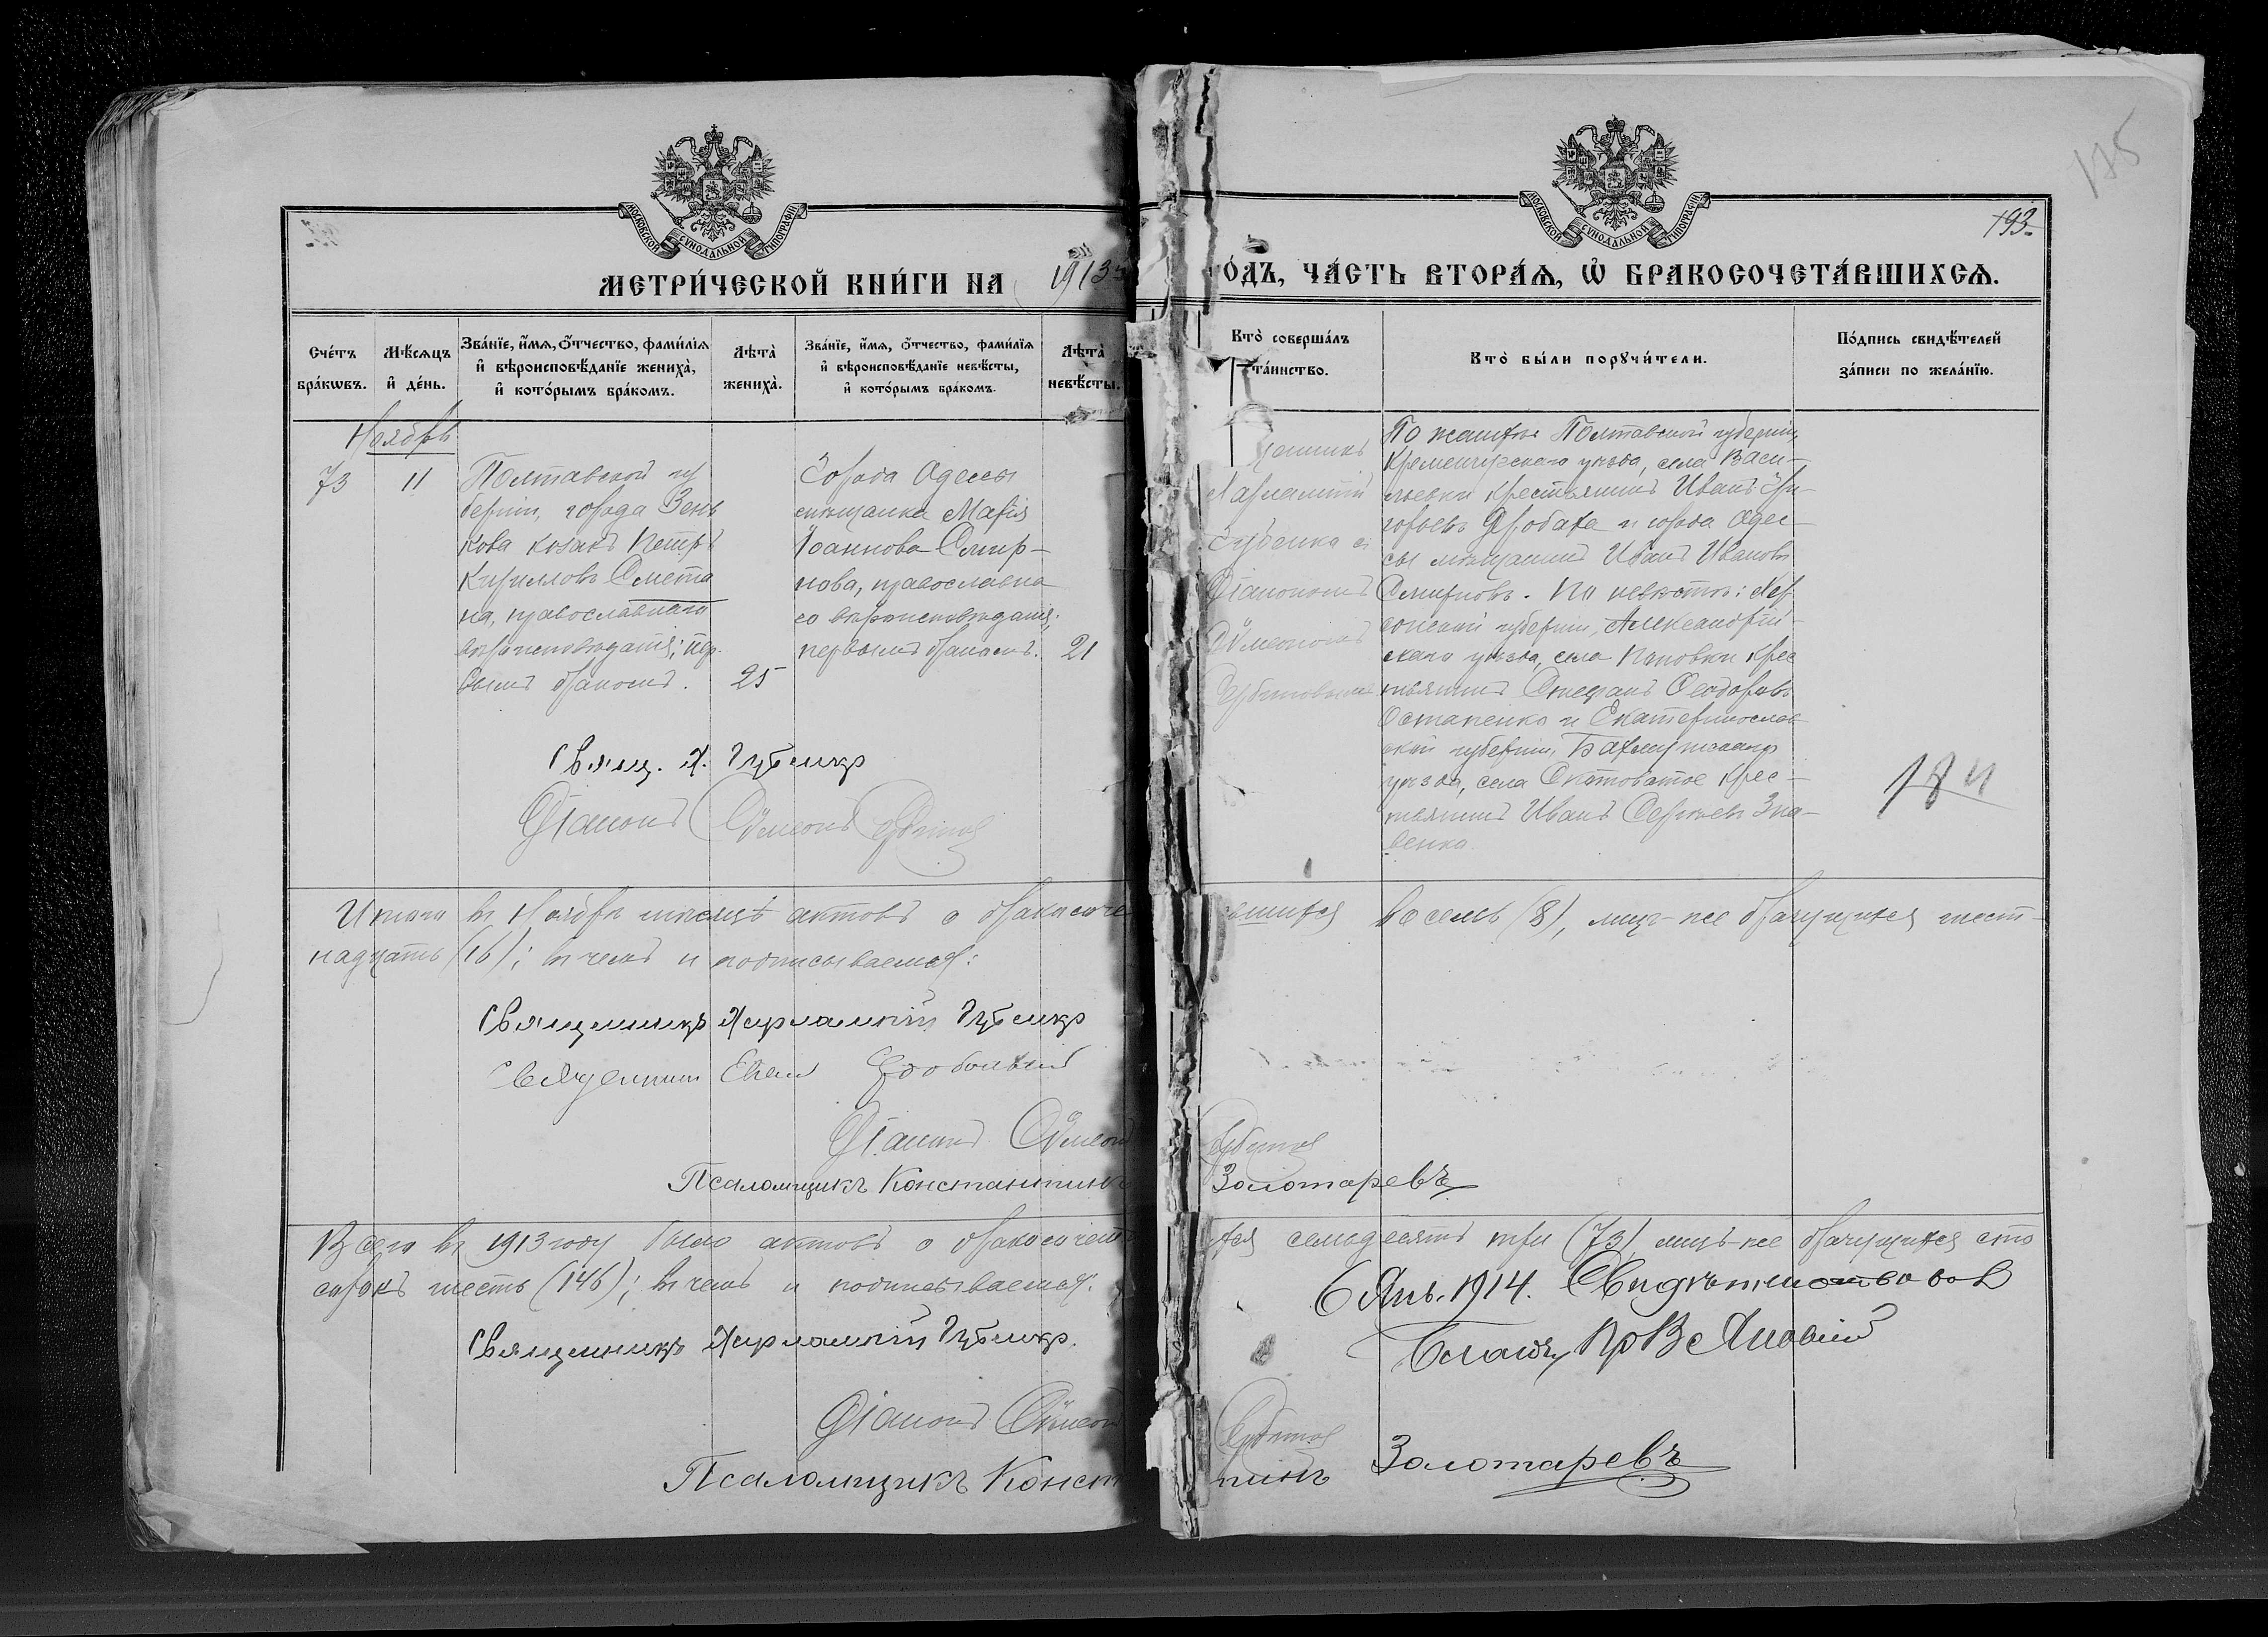 175
193.
МОСКОВСКОЙ СѴНОДАЛЬНОЙ ТИПОГРАФІИ
МОСКОВСКОЙ СѴНОДАЛЬНОЙ ТИПОГРАФІИ
МЕТРИ́ЧЕСКОЙ КНИ́ГИ НА 1913 й
О́ДЪ, ЧА́СТЬ ВТОРА́Ѧ, Ѽ БРАКОСОЧЕТА́ВШИХСѦ.
Сче́тъ бра́кѡвъ.
Мѣ́сяцъ и де́нь.
Зва́нїе, и́мя, о́тчество, фами́лїя и вѣроисповѣ́данїе жениха̀, и кото́рымъ бра́комъ.
Лѣта̀ жениха̀.
Зва́нїе, и́мя, о́тчество, фами́лїя и вѣроисповѣ́данїе невѣ́сты, и кото́рымъ бра́комъ.
Лѣта̀ невѣ́сты.
Кто̀ соверша́лъ та́инство.
Кто̀ бы́ли порꙋчи́тели.
По́дпись свидѣ́телей за́писи по жела́нїю.
Ноябрь
73
11
Полтавской гу
берніи, города Зень
кова козакъ Петръ
Кирилловъ Смета
на, православнаго
вѣроисповѣданія; пер-
вымъ бракомъ.
25
Города Одессы
мѣщанка Марія
Іоаннова Смир-
нова, православна-
го вѣроисповѣданія;
первымъ бракомъ.
21
щенникъ
Харлампій
Губенко съ
Діакономъ
Сѵмеономъ
По женихѣ: Полтавской губерніи,
Кременчугскаго уѣзда, села Васи-
льевки крестьянинъ Иванъ Гри-
горьевъ Яробаха и города Одес-
сы мѣщанинъ Иванъ Ивановъ
Смирновъ. По невѣстѣ: Хер-
сонской губерніи, Александрій-
скаго уѣзда, села Пановки крес
тьянинъ Стефанъ Ѳеодоровъ
Остапенко и Екатеринослав-
ской губерніи, Бахмутскаго
уѣзда, села Скотоватое крес-
тьянинъ Иванъ Сергіевъ Зна-
венко.
Свящ. Х. Губенко
Діаконъ Сѵмеонъ
Итого въ Ноябрѣ мѣсяцѣ актовъ о бракосоче
вшихся восемь (8), лицъ-же брачущихся шест-
надцать (16); въ чемъ и подписываемся:
Священникъ Харлампій Губенко
Священникъ
Діаконъ Сѵмеонъ
Псаломщикъ Константинъ Золотаревъ
Всего въ 1913 году было актовъ о бракосочет
хся семьдесятъ три (73), лицъ-же брачущихся сто
сорокъ шесть (146); въ чемъ и подписываемся:
6 Янв. 1914. Свидѣтельствовалъ
Священникъ Харлампій Губенко.
Благоч. Пр В Яновскій
Діаконъ Сѵмеонъ
Псаломщикъ Константинъ Золотаревъ